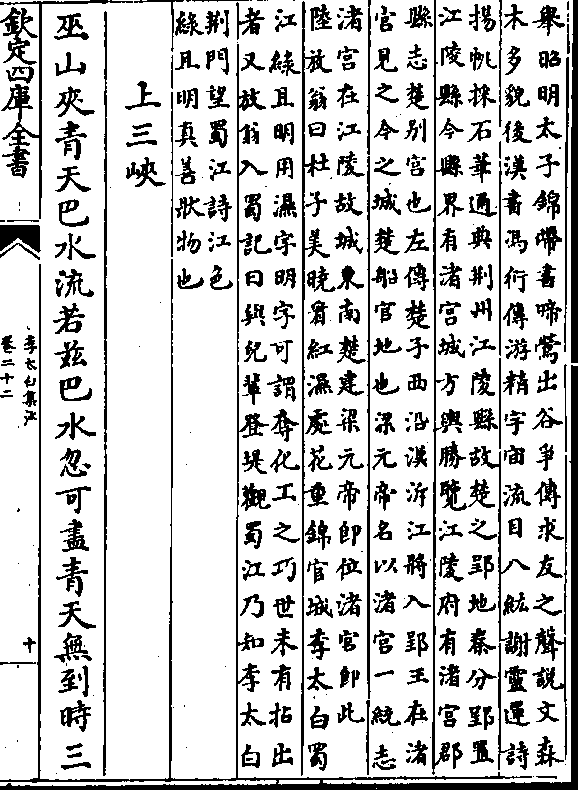 舉昭明太子錦帶書啼鶯出谷爭傳求友之聲說文森
木多貌後漢書馮衍傳游精宇宙流目八紘謝靈運詩
揚帆採石華通典荆州江陵縣故楚之郢地秦分郢置
江陵縣今縣界有渚宮城方輿勝覽江陵府有渚宮郡
縣志楚别宮也左傳楚子西沿漢泝江將入郢王在渚
宮見之今之城楚船官地也梁元帝名以渚宮一統志
渚宮在江陵故城東南楚建梁元帝即位渚宮即此
陸放翁曰杜子美曉看紅濕處花重錦官城李太白蜀
江綠且明用濕字明字可謂奪化工之巧世未有拈出
者又放翁入蜀記曰與兒輩登堤觀蜀江乃知李太白
荆門望蜀江詩江色
綠且明真善狀物也
上三峽
巫山夾青天巴水流若兹巴水忽可盡青天無到時三
欽定四庫全書
李太白集注
卷二十二
十